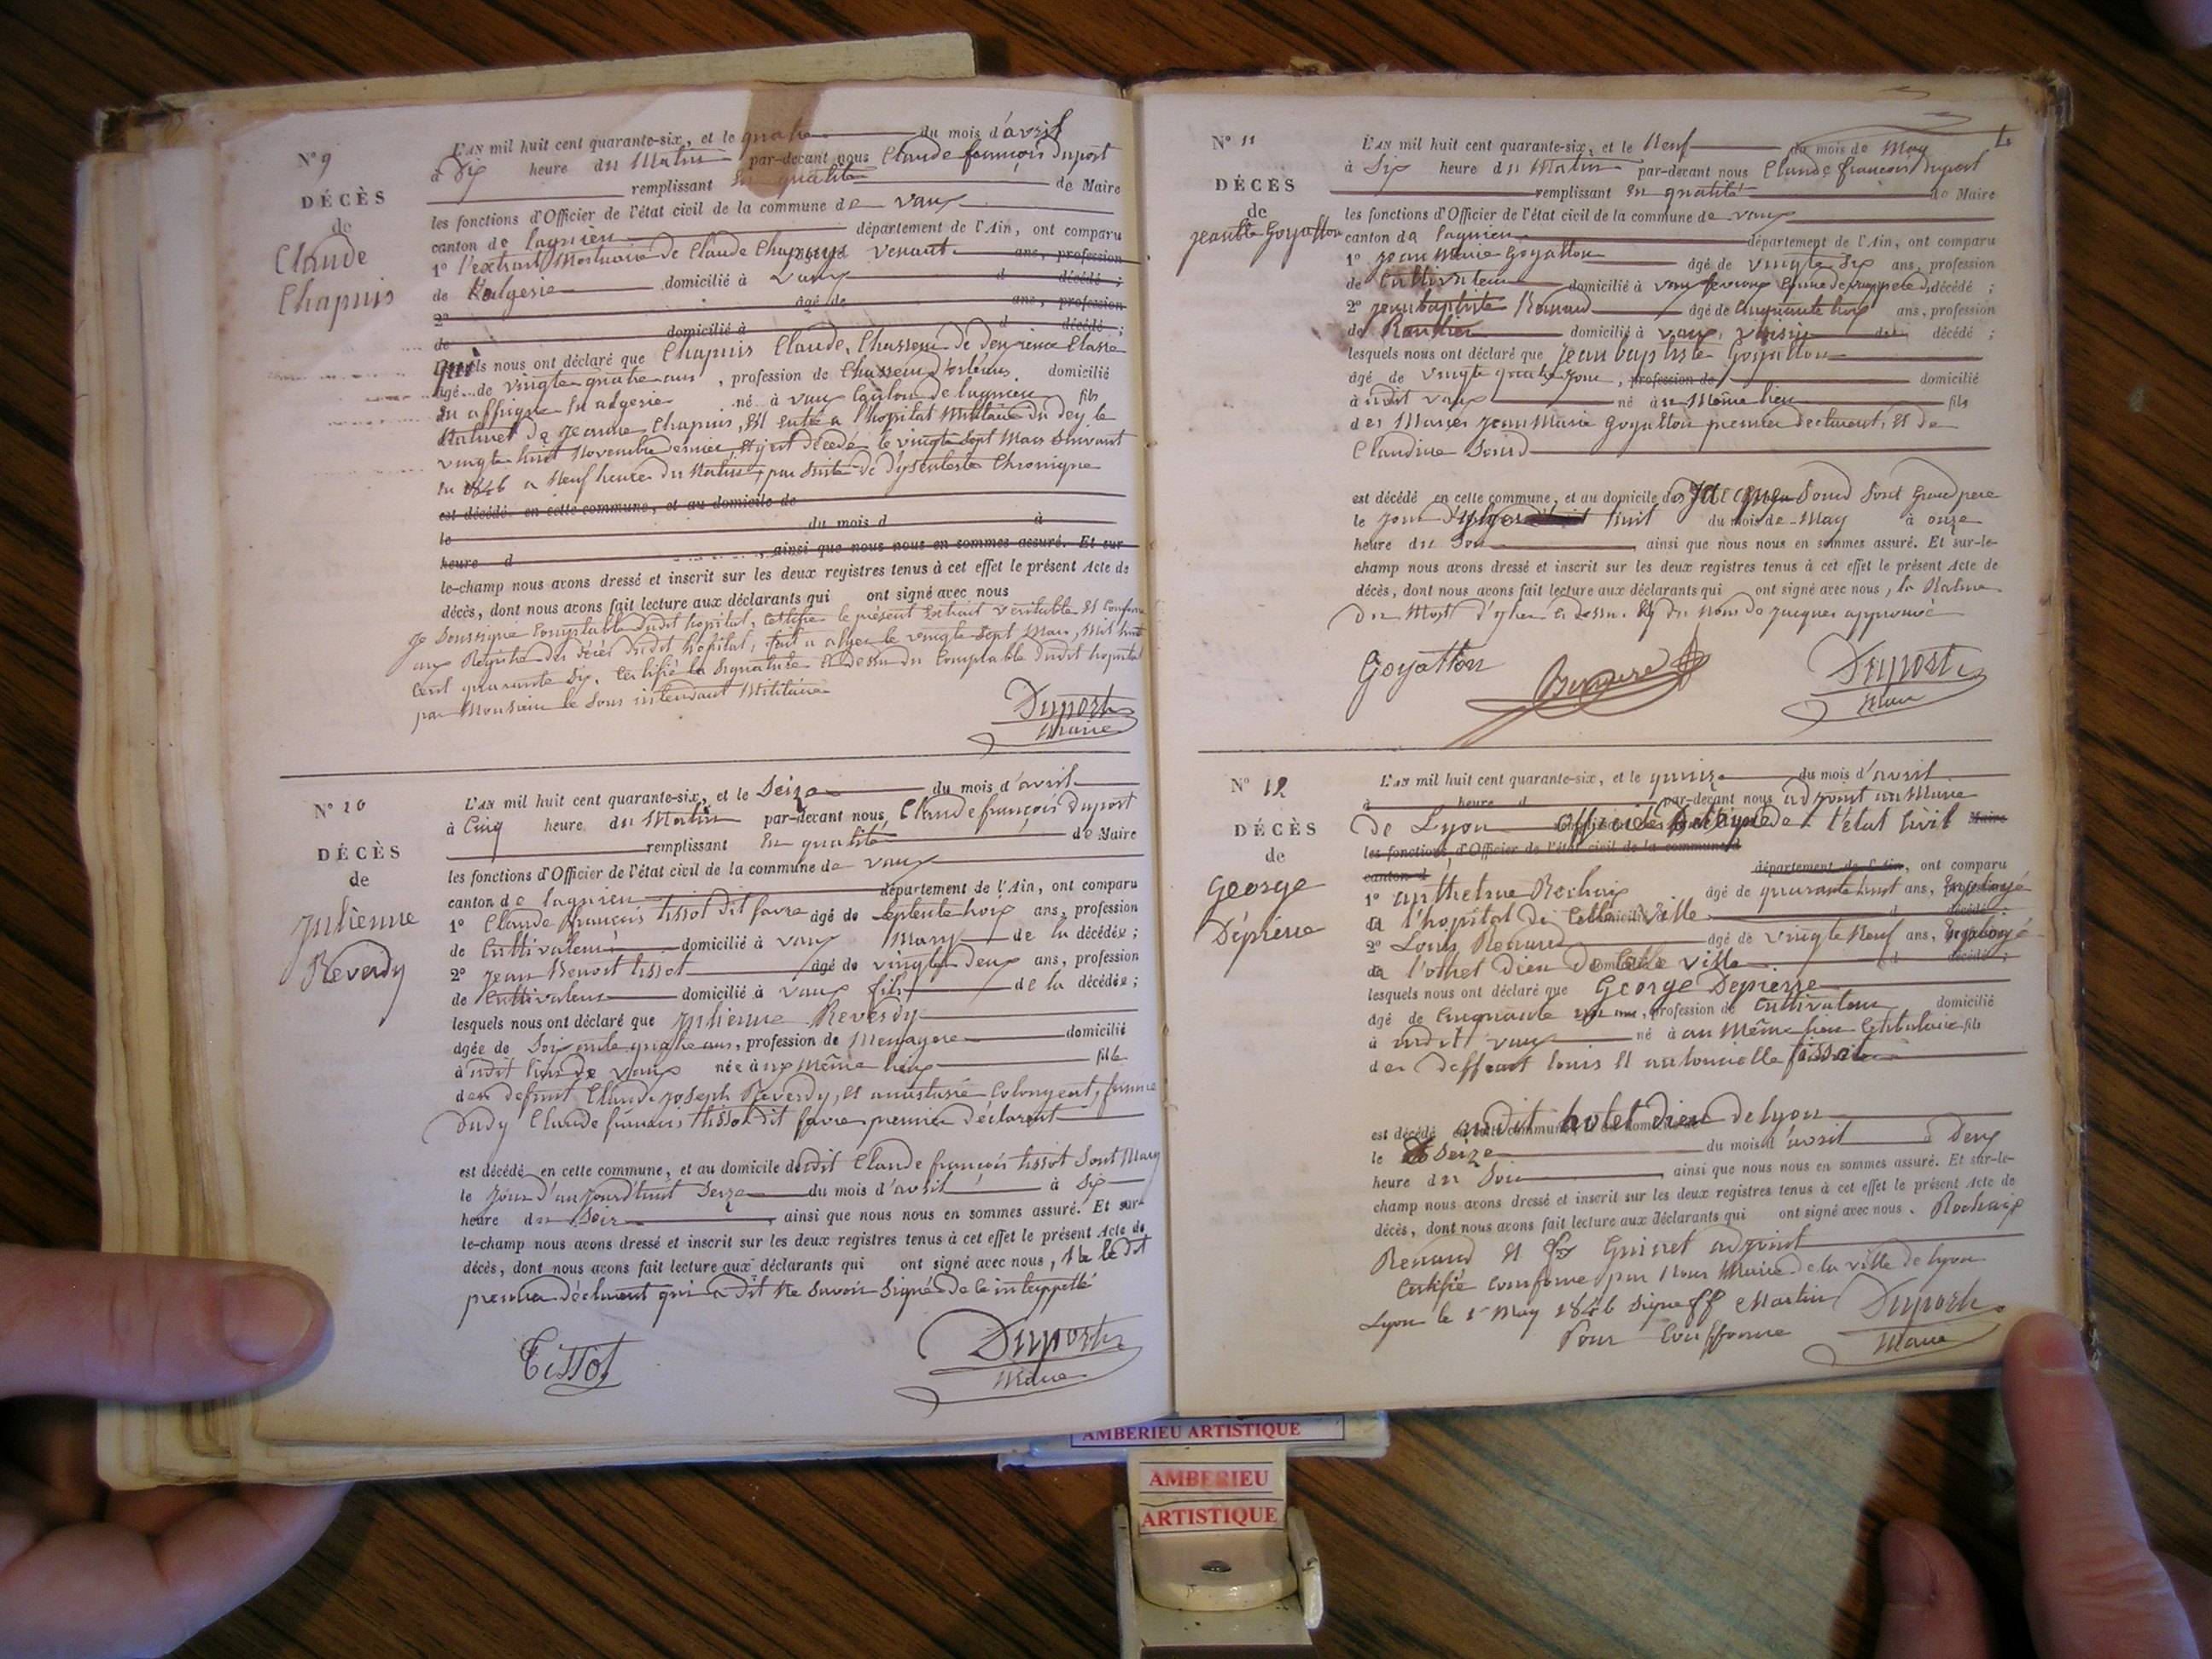 N° 9
DÉCÈS
de
Claude
Chapuis
L'AN mil huit cent quarante-six, et le quatre du mois d'avril
à Dix heure du Matin par-devant nous Claude françois Duport
remplissant en qualité de Maire
les fonctions d'Officier de l'état civil de la commune de Vaux
canton de lagnieu département de l'Ain, ont comparu
1° l'extrait Mortuaire de Claude Chapuis venant ans, profession
de l'algerie domicilié à Vaux d décédé ;
2° âgé de ans, profession
de domicilié à d décédé ;
nous ont déclaré que Chapuis Claude, Chasseur de deuxieme Classe
âgé de vingte quatre ans, profession de Chasseur d'orléans domicilié
en affrique en algerie né à vaux Canton de lagnieu fils
Naturel de Jeanne Chapuis, est entré a l'hopital Militaire du dey le
vingte huit Novembre dernier, et y est décédé le vingte sept Mars Suivant
en 1846 a Neuf heure du Matin, par Suite de Chronique
est décédé en cette commune, et au domicile de
le du mois d à
heure d , ainsi que nous nous en sommes assuré. Et sur-
le-champ nous avons dressé et inscrit sur les deux registres tenus à cet effet le présent Acte de
décès, dont nous avons fait lecture aux déclarants qui ont signé avec nous
Je Soussigné Comptable dudit hopital, Certifie le présent Extrait veritable et Conforme
aux Registre des décès dudit hôpital, fait a alger le vingte Sept Mars, Mil huit
Cent quarante Six. Certifié la Signature Cidessu du Comptable dudit hopital
par Monsieur le Sous intendant Militaire
Duport
Maire
N° 10
DÉCÈS
de
Julienne
Reverdy
L'AN mil huit cent quarante-six, et le Seize du mois d'avril
à Cinq heure du Matin par-devant nous Claude françois Duport
remplissant en qualité de Maire
les fonctions d'Officier de l'état civil de la commune de vaux
canton de lagnieu département de l'Ain, ont comparu
1° Claude françois tissot dit favre âgé de Septente trois ans, profession
de Cultivateur domicilié à vaux Mary de la décédée ;
2° Jean Benoit tissot âgé de vingte deux ans, profession
de Cultivateur domicilié à vaux fils de la décédée ;
lesquels nous ont déclaré que Julienne Reverdy
âgée de Soixante quatre ans, profession de Menagere domicilié
à udit lieu de Vaux née à ux même lieux fille
des defunt Claude Joseph Reverdy, et anastasie Colongeat, femme
dudy Claude françois tissot dit favre premier déclarent
est décédé en cette commune, et au domicile dudit Claude françois tissot Sont Mary
le Jour d'aujourd'huit Seize du mois d'avril à Six
heure du Soir , ainsi que nous nous en sommes assuré. Et sur-
le-champ nous avons dressé et inscrit sur les deux registres tenus à cet effet le présent Acte de
décès, dont nous avons fait lecture aux déclarants qui ont signé avec nous, Ne le dit
premier déclarent qui a dit Ne Savoir Signé de Ce interppellé
Tissot
Duport
Maire
N° 11
DÉCÈS
de
Jeanbte Goyatton
L'AN mil huit cent quarante-six, et le Neuf du mois de May
à Six heure du Matin par-devant nous Claude françois Duport
remplissant en qualité de Maire
les fonctions d'Officier de l'état civil de la commune de vaux
canton de lagnieu département de l'Ain, ont comparu
1° Jean Marie Goyatton âgé de vingte Six ans, profession
de Cultivateur domicilié à vaux pere du décédé ;
2° Jeanbaptiste Renaud âgé de Cinquante trois ans, profession
de Rentier domicilié à vaux, voisin décédé ;
lesquels nous ont déclaré que Jean baptiste Goyatton
âgé de vingte quatre Jour, profession de domicilié
à udit vaux né à ux Même lieu fils
des Mariés Jean Marie Goyatton premier declarent, et de
Claudine Sourd
est décédé en cette commune, et au domicile de Jacques Sourd Sont Grand pere
le Jour d'hyer huit du mois de May à onze
heure du Soir , ainsi que nous nous en sommes assuré. Et sur-le-
champ nous avons dressé et inscrit sur les deux registres tenus à cet effet le présent Acte de
décès, dont nous avons fait lecture aux déclarants qui ont signé avec nous, la Rature
du Most d'hyer Ci dessu. Et du Nom de Jacques approuvé
Goyatton
Duport
Maire
N° 12
DÉCÈS
de
George
Dépierre
L'AN mil huit cent quarante-six, et le quinze du mois d'avril
à heure d par-devant nous adjoint au Maire
de Lyon officier de l'état Civil Maire
les fonctions d'Officier de l'état civil de la commune d
canton d département de l'Ain, ont comparu
1° anthelme Rochaix âgé de quarante huit ans, Employé
de l'hopital de Cette ville d décédé ;
2° Louis Renaud âgé de vingte Neuf ans, Employé
de l'othel dieu de Cette ville d décédé ;
lesquels nous ont déclaré que George Depierre
âgé de Cinquante ans, profession de Cultivateur domicilié
à udit vaux né à au Même lieu Celibataire fils
des deffunt louis et antoinette
est décédé audit hotel dieu de lyon
le Seize du mois d'avril à Deux
heure du Soir , ainsi que nous nous en sommes assuré. Et sur-le-
champ nous avons dressé et inscrit sur les deux registres tenus à cet effet le présent Acte de
décès, dont nous avons fait lecture aux déclarants qui ont signé avec nous. Rochaix
Renaud et Guinet adjoint
Certifié Conforme par Nous Maire de la ville de lyon
Lyon le 1er May 1846 Signé ff Martin
Pour Conforme
Duport
Maire
AMBERIEU ARTISTIQUE
AMBERIEU
ARTISTIQUE